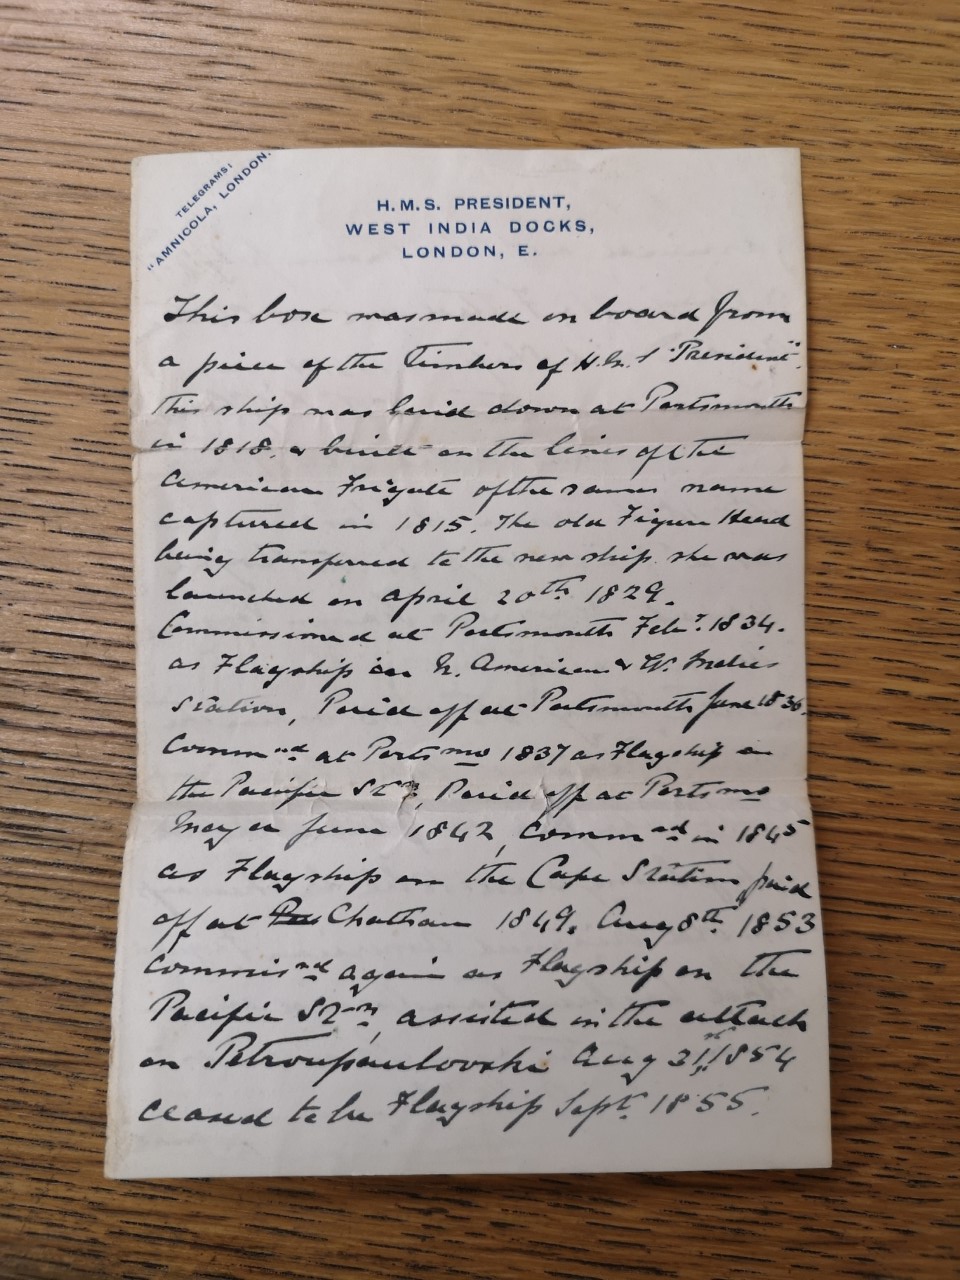 TELEGRAMS:
"AMNICOLA, LONDON."
H.M.S. PRESIDENT,
WEST INDIA DOCKS,
LONDON, E.
This box was made on board from
a piece of the Timbers of H.M.S "President".
this ship was laid down at Portsmouth
in 1818, & built on the lines of the
American Frigate of the same name
captured in 1815. The old Figure Head
being transferred to the new ship. she was
launched on April 20th 1829.
Commissioned at Portsmouth Feby. 1834.
as Flagship on N. American & W. Indies
Station, Paid off at Portsmouth June 1836.
Commnd at Portsmo 1837 as Flagship on
the Pacific Stn, Paid off at Portsmo
May or June 1842, Commnd in 1845
as Flagship on the Cape Station paid
off at Chatham 1849. Aug 8th 1853
Commisnd again as Flagship on the
Pacific Stn, assisted in the attack
on Petroupaulovski Aug 31st 1854
ceased to be Flagship Sept. 1855.